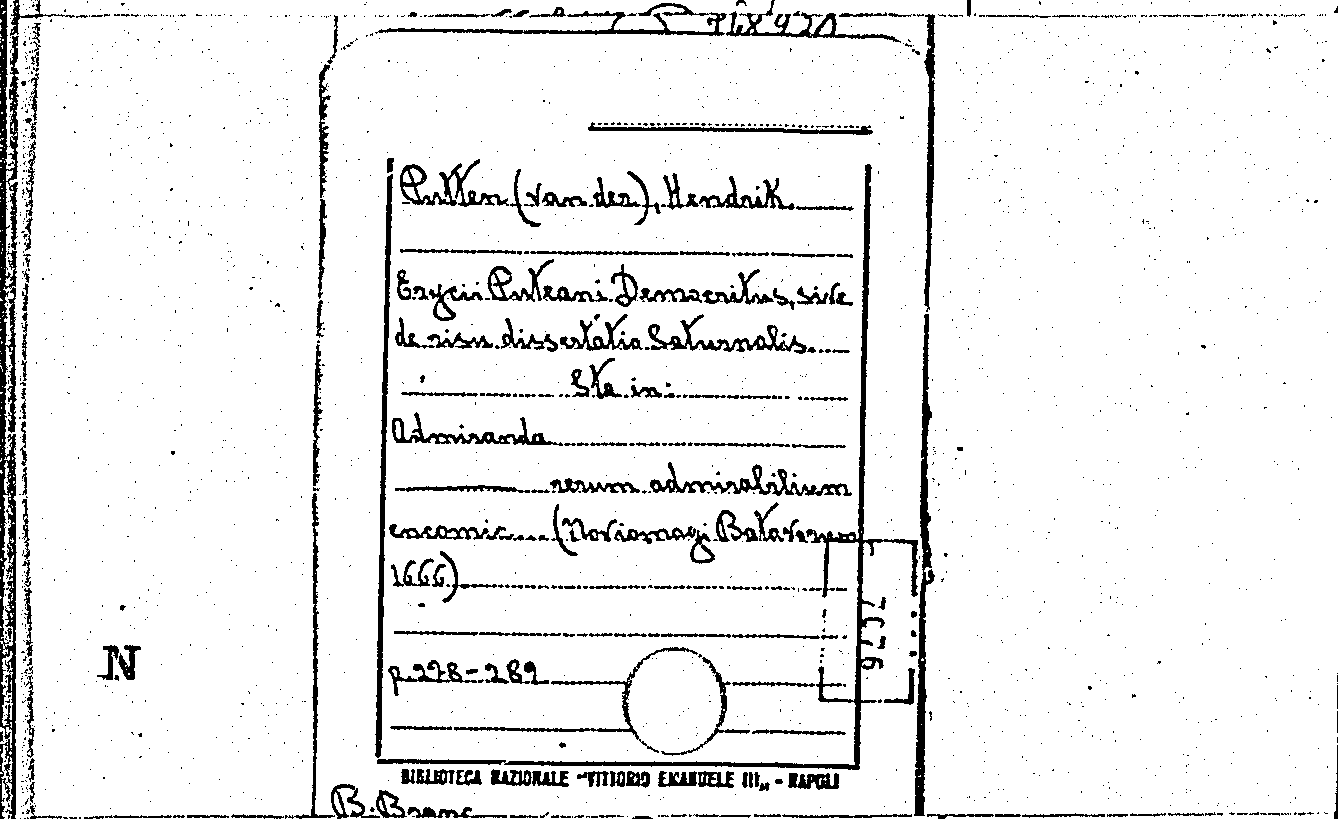 Putten (van der), Hendrik.
Erycii Puteani Democritus, sive
de risu dissertatio Saturnalis.
Sta in:
Admiranda
rerum admirabilium
encomic.... (Noviomagi Batavorum
1666)
p. 278-289
N
BIBLIOTECA NAZIONALE "VITTORIO EMANUELE III„ - NAPOLI